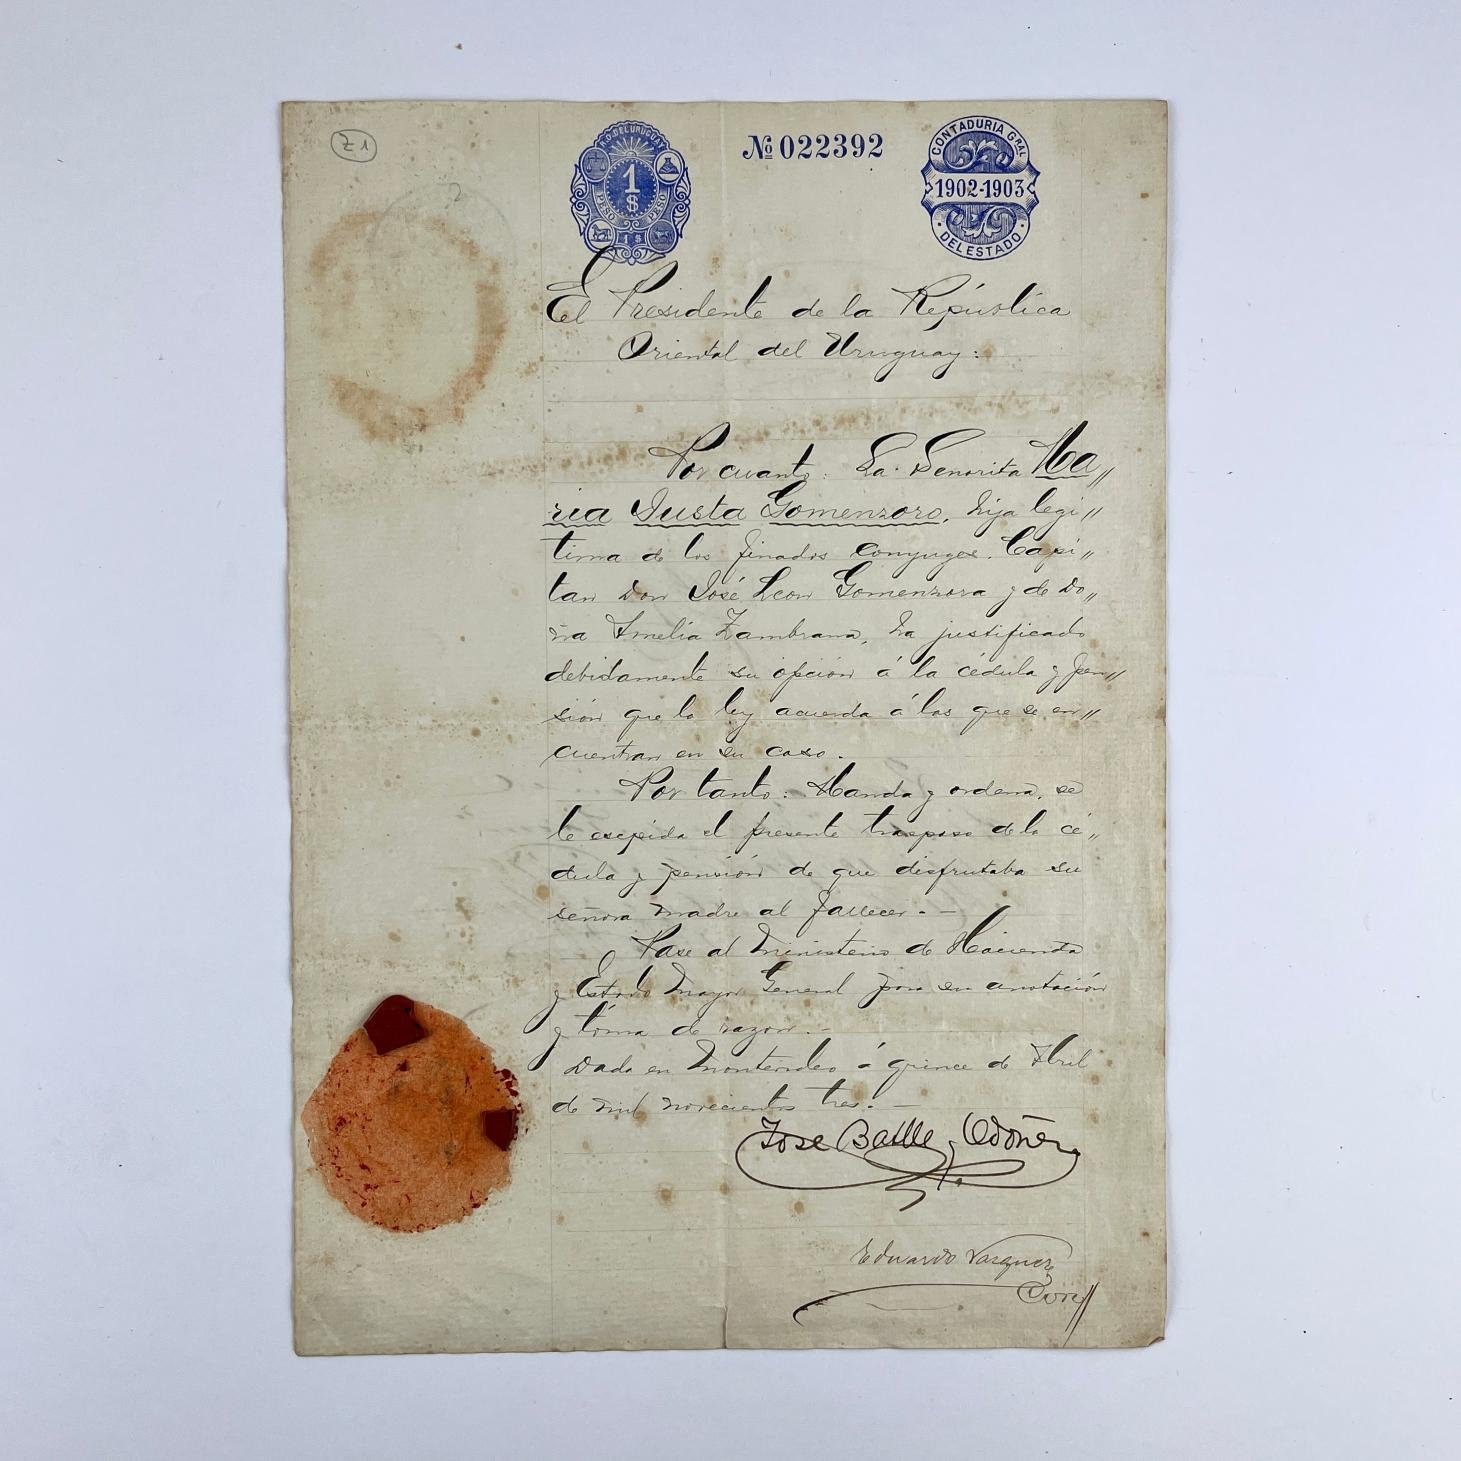 Z1
2
R.O. DEL URUGUAY
1
$
PESO PESO
1 $
No 022392
CONTADURIA GRAL
1902-1903
DEL ESTADO
El Presidente de la República
Oriental del Uruguay:
Por cuanto: La Señorita Ma„
ria Justa Gomenzoro, hija legi„
tima de los finados conyuges, Capi„
tan Don José Leon Gomenzoro y de Do„
ña Amelia Zambrana, ha justificado
debidamente su opcion á la cédula y pen„
sión que la ley acuerda á las que se en„
cuentran en su caso.
Por tanto: Manda y ordena, se
le esepida el presente traspaso de la cé„
dula y pensión de que disfrutaba su
señora madre al fallecer.-
Pase al Ministerio de Hacienda
y Estado Mayor General para su anotación
y toma de razon.-
Dada en Montevideo á quince de Abril
de mil novecientos tres.-
Jose Batlle y Odoñez
Eduardo Vazquez